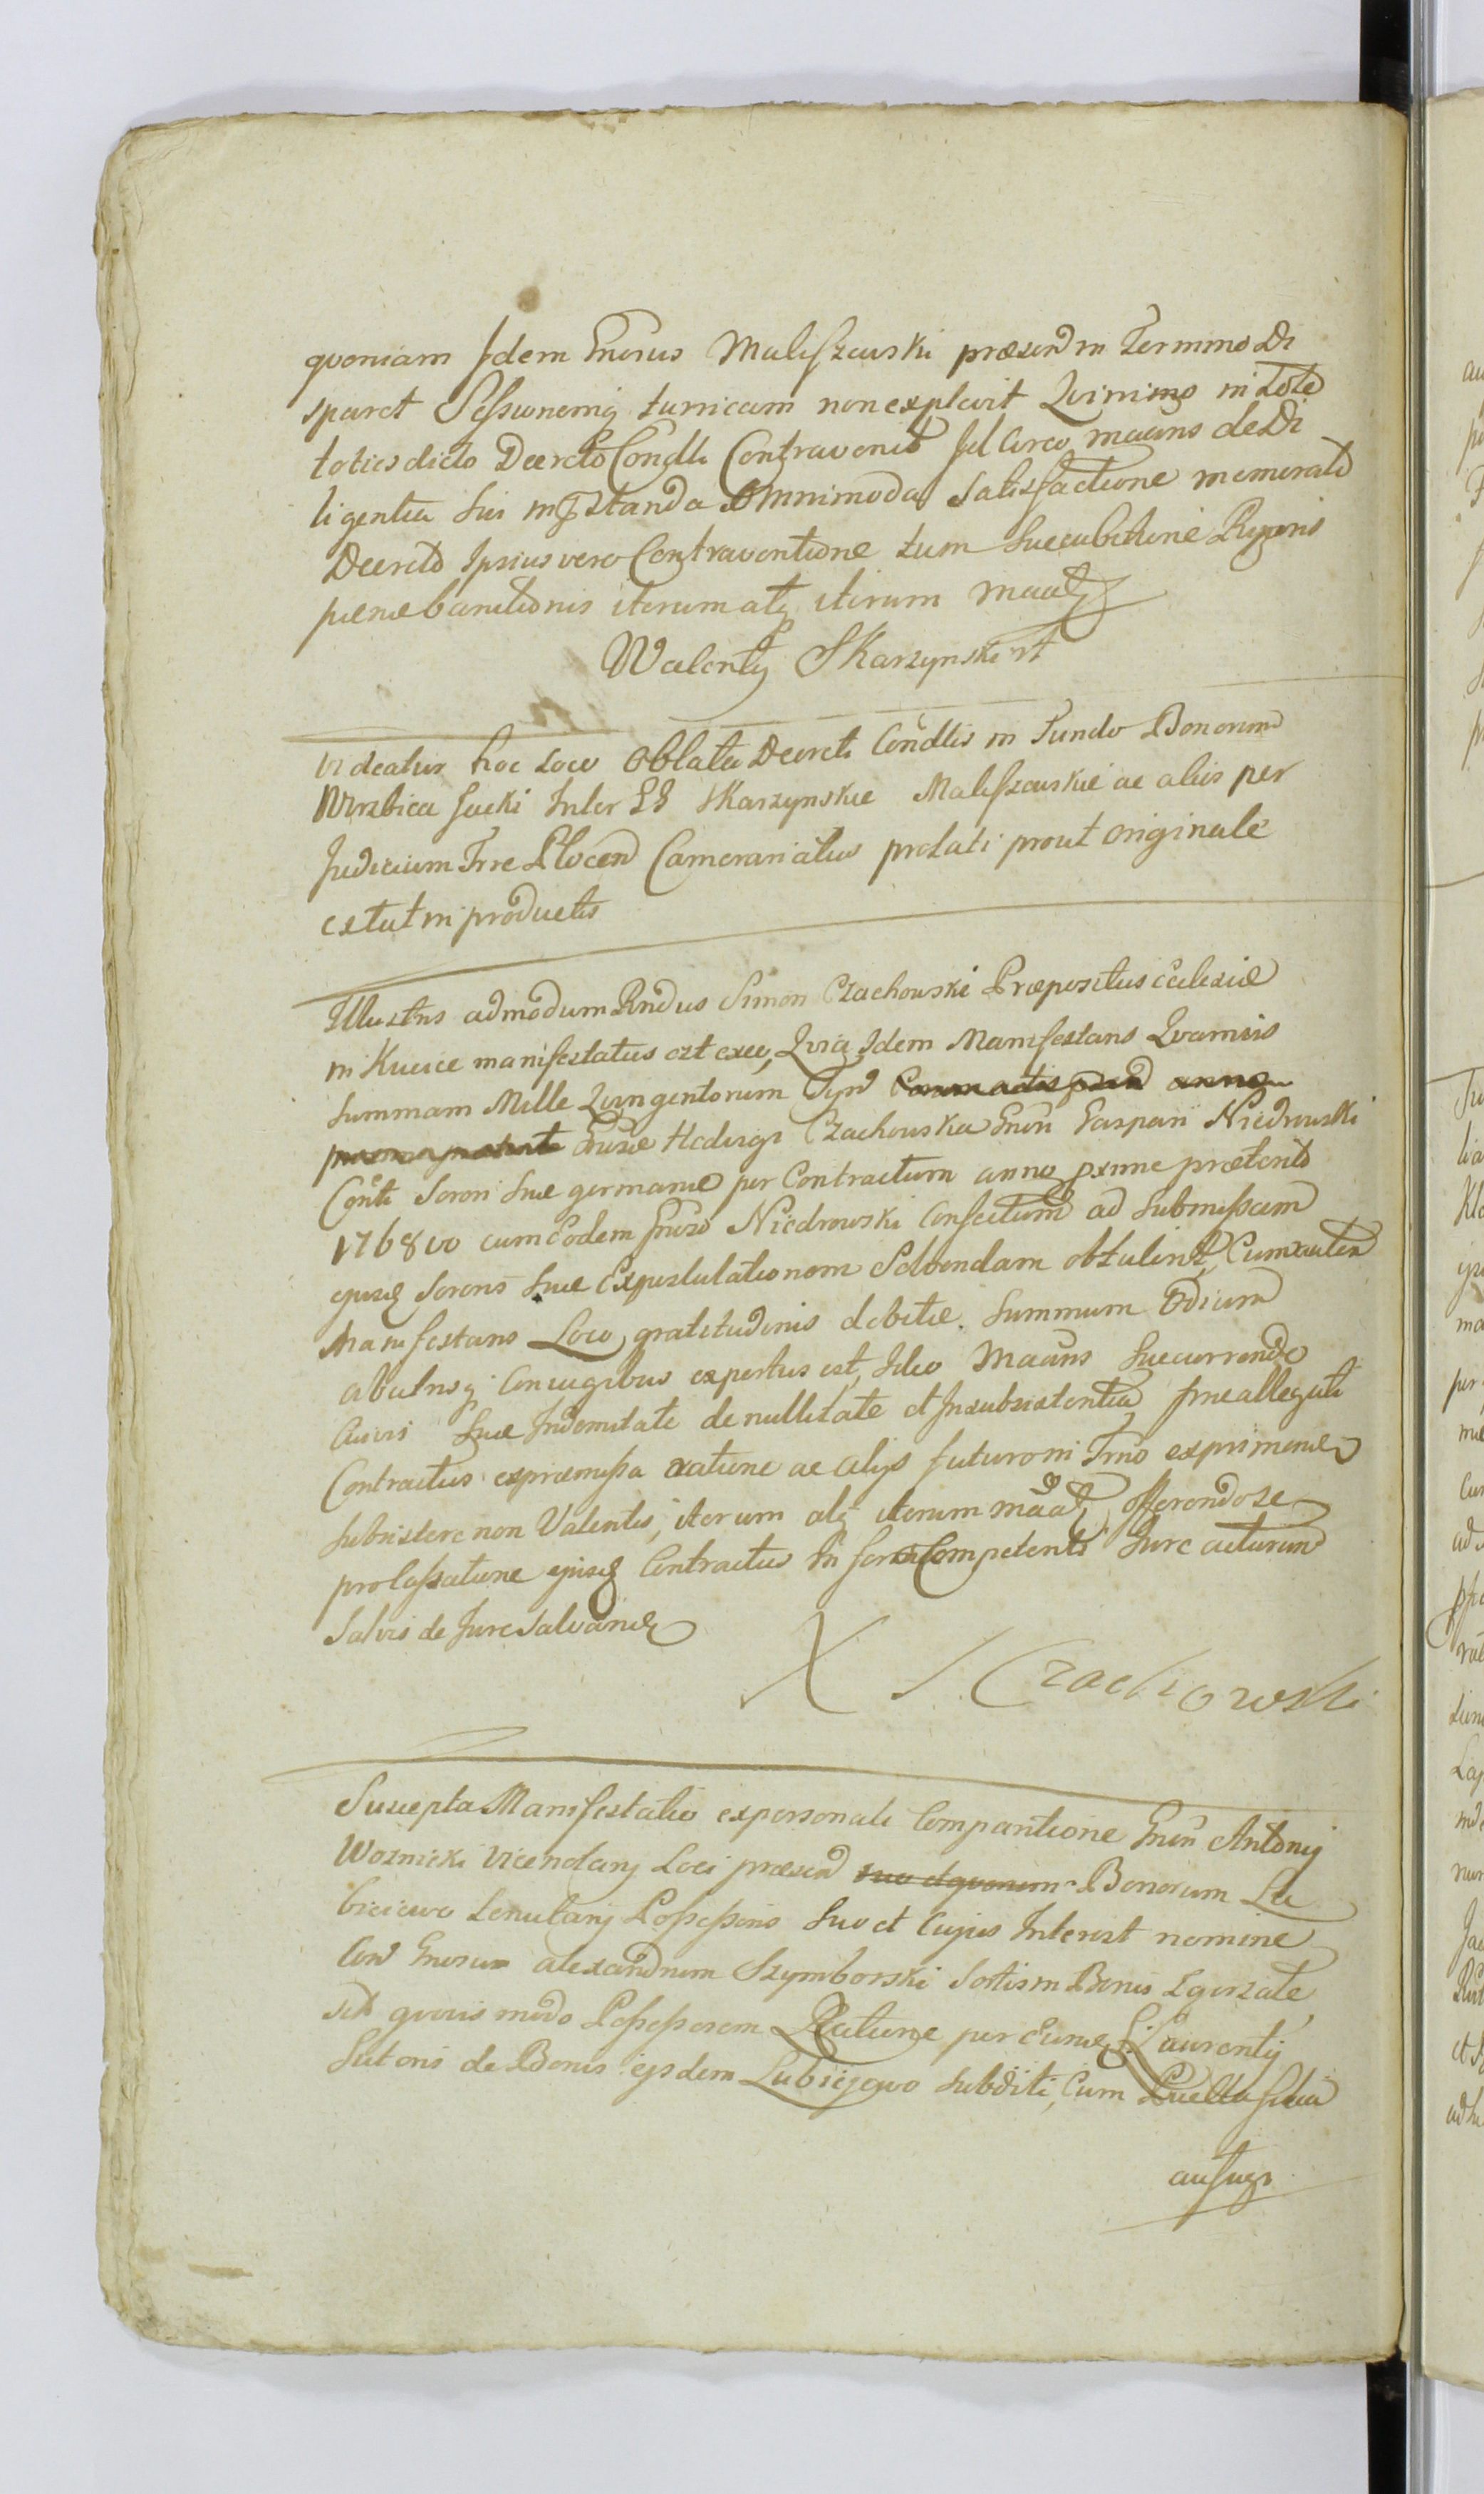 quoniam Idem Gnosus Maliszewski præsend in Termino Di
sparet Sessionemq turricam non explevit Quinimo in Toto
toties dicto Decreto Condlli Contravenit Id Circo maans de Di
ligentia sui in pstanda Omnimoda satisfactione memorato
Decreto Ipsius vero Contraventione tum succubitione Rigoris
pænæ banitionis iterum atq iterum maatq
Walenty Skarzynski
Videatur hoc Loco Oblata Decreti Condllis in Fundo Bonorum
Wirzbica Inter GG Skarzynskie Maliszewskie ac alios per
Judicium Trre Plocen Camerariatus prolati prout originale
estat in productis
Illustris admodum Rndus Simon Czachowski Præpositus Ecclesiæ
in Kucice manifestatus est Quia Idem Manifestans Quamvis
summam Mille Quingentorum anno
Gnosæ Hedvigi Czachowska Gnsi Gaspari Niedrowski
Conti Sorori suæ germanæ per Contractum anno pxime præterito
1768vo cum Eodem Gnoso Niedrowski Confectum ad submissam
ejusq Sororis suæ Expostulationem Solvendam obtulerit, Cum autem
Manifestans Loco gratitudinis debitæ summum Odium
ab utrisq Conjugibus expertus est, Ideo Maans succurrendo
suæ Indemnitate de nullitate et Insubsistentia præallegati
Contractus expræmissa ratione ac alys futuro in Trmo exprimend
subsistere non Valentis, iterum atq iterum maatq offerendo se
pro cassatione ejusq Contractus In foro Competenti Jure acturum
Salvis de Jure Salvandis
X S Czachowski
Suscepta Manifestatio ex personali Comparitione Gnsi Antonij
Woznicki Vicenotarij Loci præsend suo et quorum Bonorum Lu
bieiewo tenutarij Possessoris suo et Cujus Interest nomine
Con Gnosum Alexandrum Szymborski Sortis in Bonis Zgorzale
seu quovis modo Possessorem Ratione per Eumq Laurentij
Sutoris de Bonis ejsdem Lubiejewo subditi, Cum Puella filia
aufugi